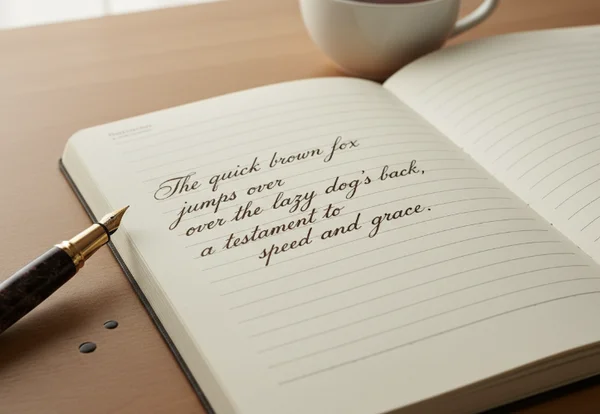 The quick brown fox
jumps over
over the lazy dog's back,
a testament to
speed and grace.